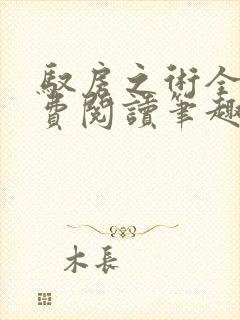 馭房之術全
費閱讀筆趣
木長